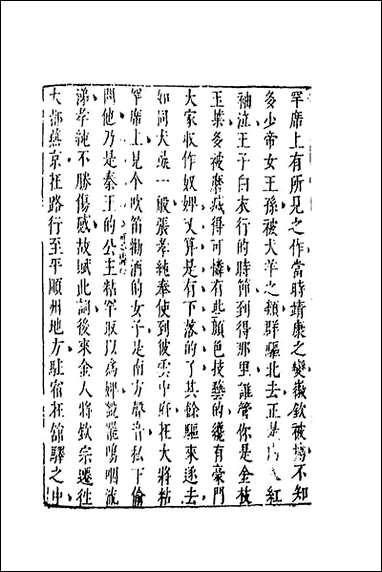 罕席上有所見之作當時靖康之變徽欽被擄不知
多少帝女王孫被犬羊之類群驅北去正是內人紅
袖泣王子白衣行的時節到得那里誰管你是金枝
玉葉多被磨滅得可憐有些顏色技藝的纔有豪門
大家收作奴婢又算是有下落的了其餘驅來逐去
如同犬彘一般張孝純奉使到彼雲中府在大將粘
罕席上見个吹笛勸酒的女子是南方聲音私下偷
問他乃是秦王的公主粘罕取以為婢說罷嗚咽流
涕孝純不勝傷感故賦此詞後來金人將欽宗遷徃
大都燕京在路行至平順州地方駐宿在舘驛之中